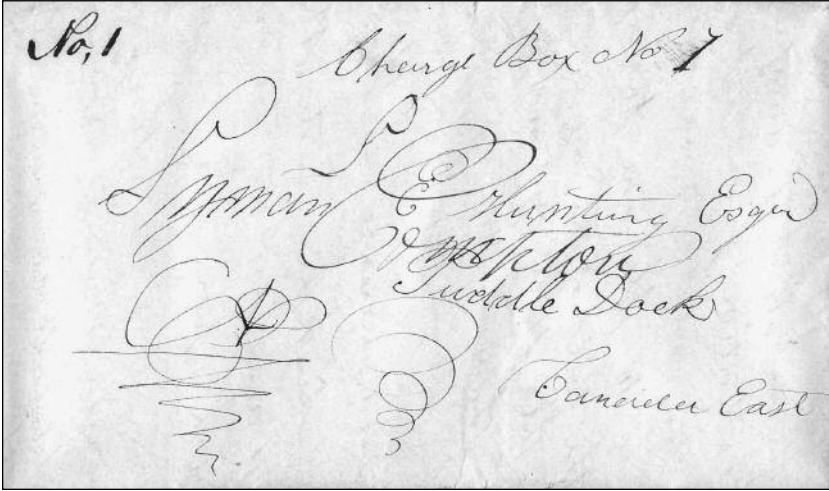 No, 1
Charge Box No 7
Lyman E Hunting Esqr
Compton
Puddle Dock
Canada East